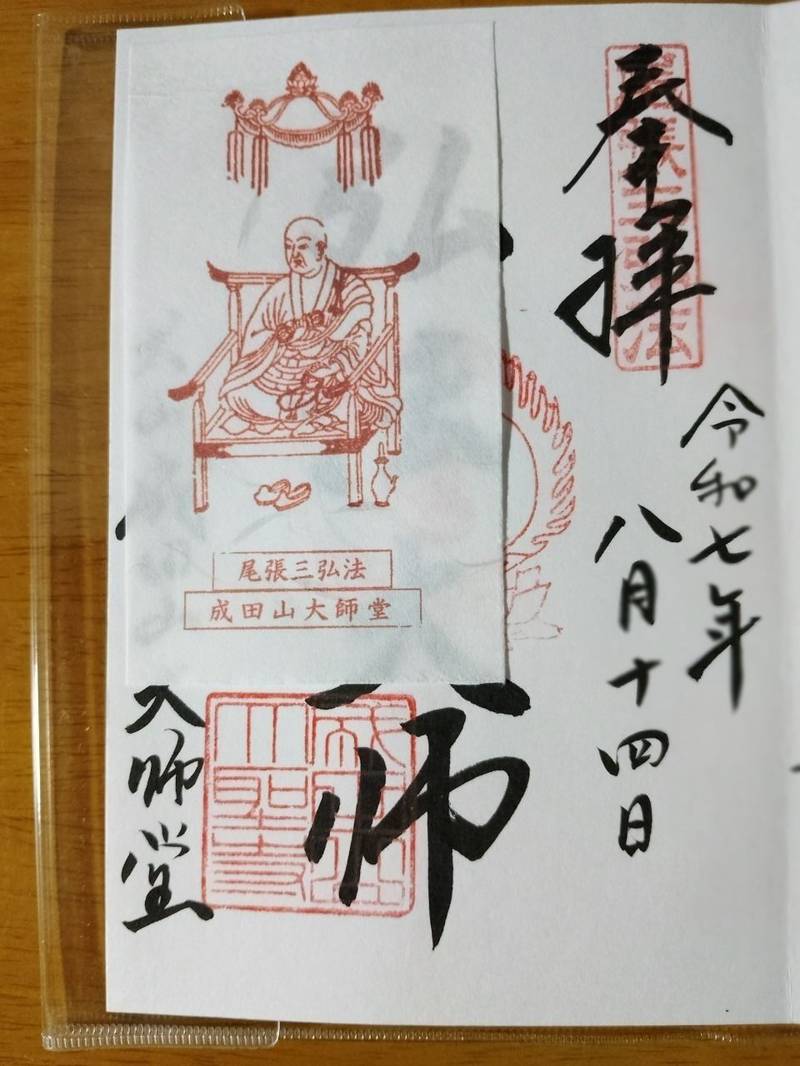 奉拝
尾張三弘法
令和七年
八月十四日
弘
師
大師堂
尾張三弘法
成田山大師堂